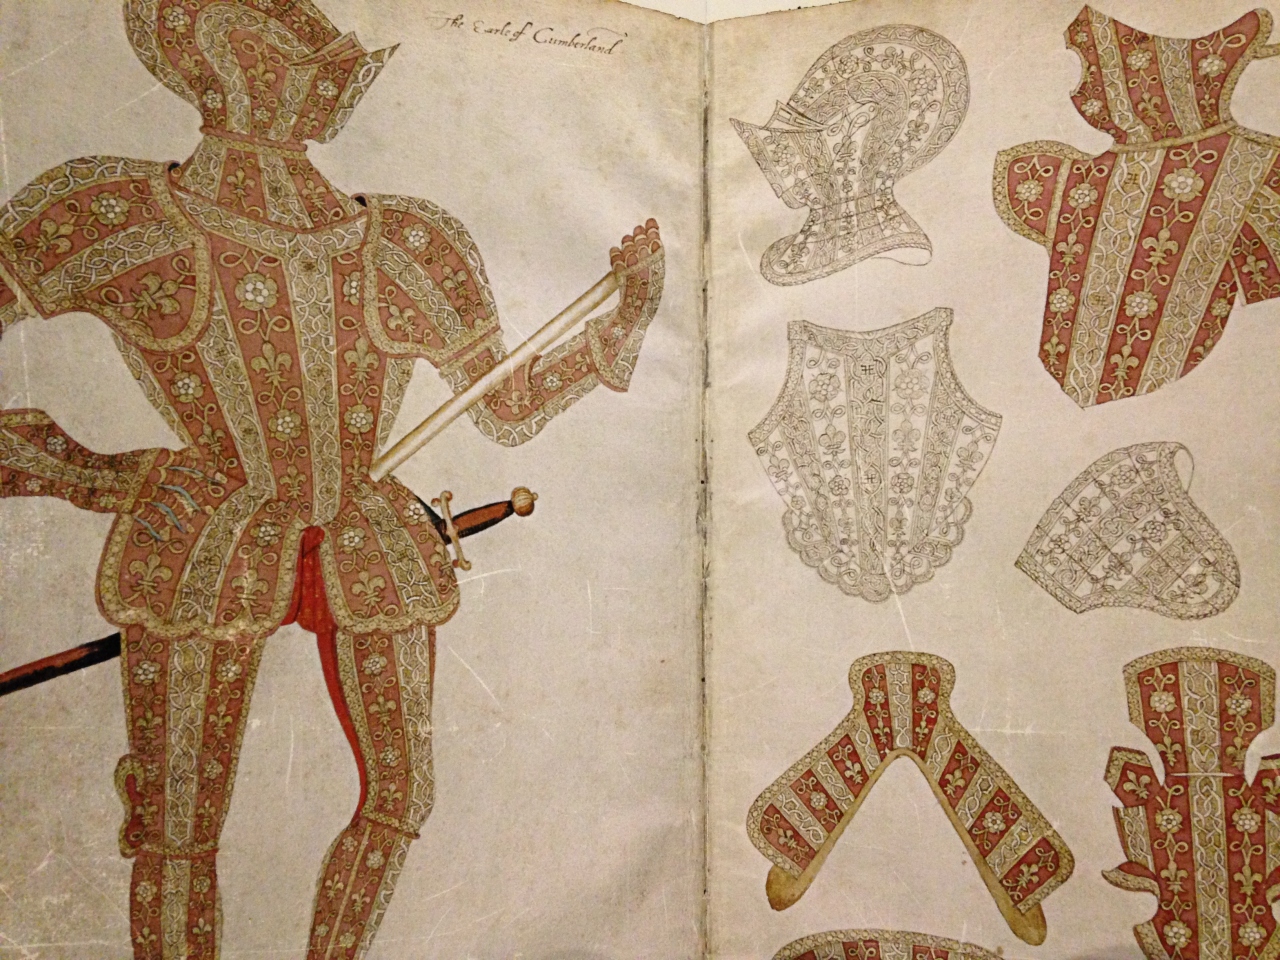 The Earle of Cumberland